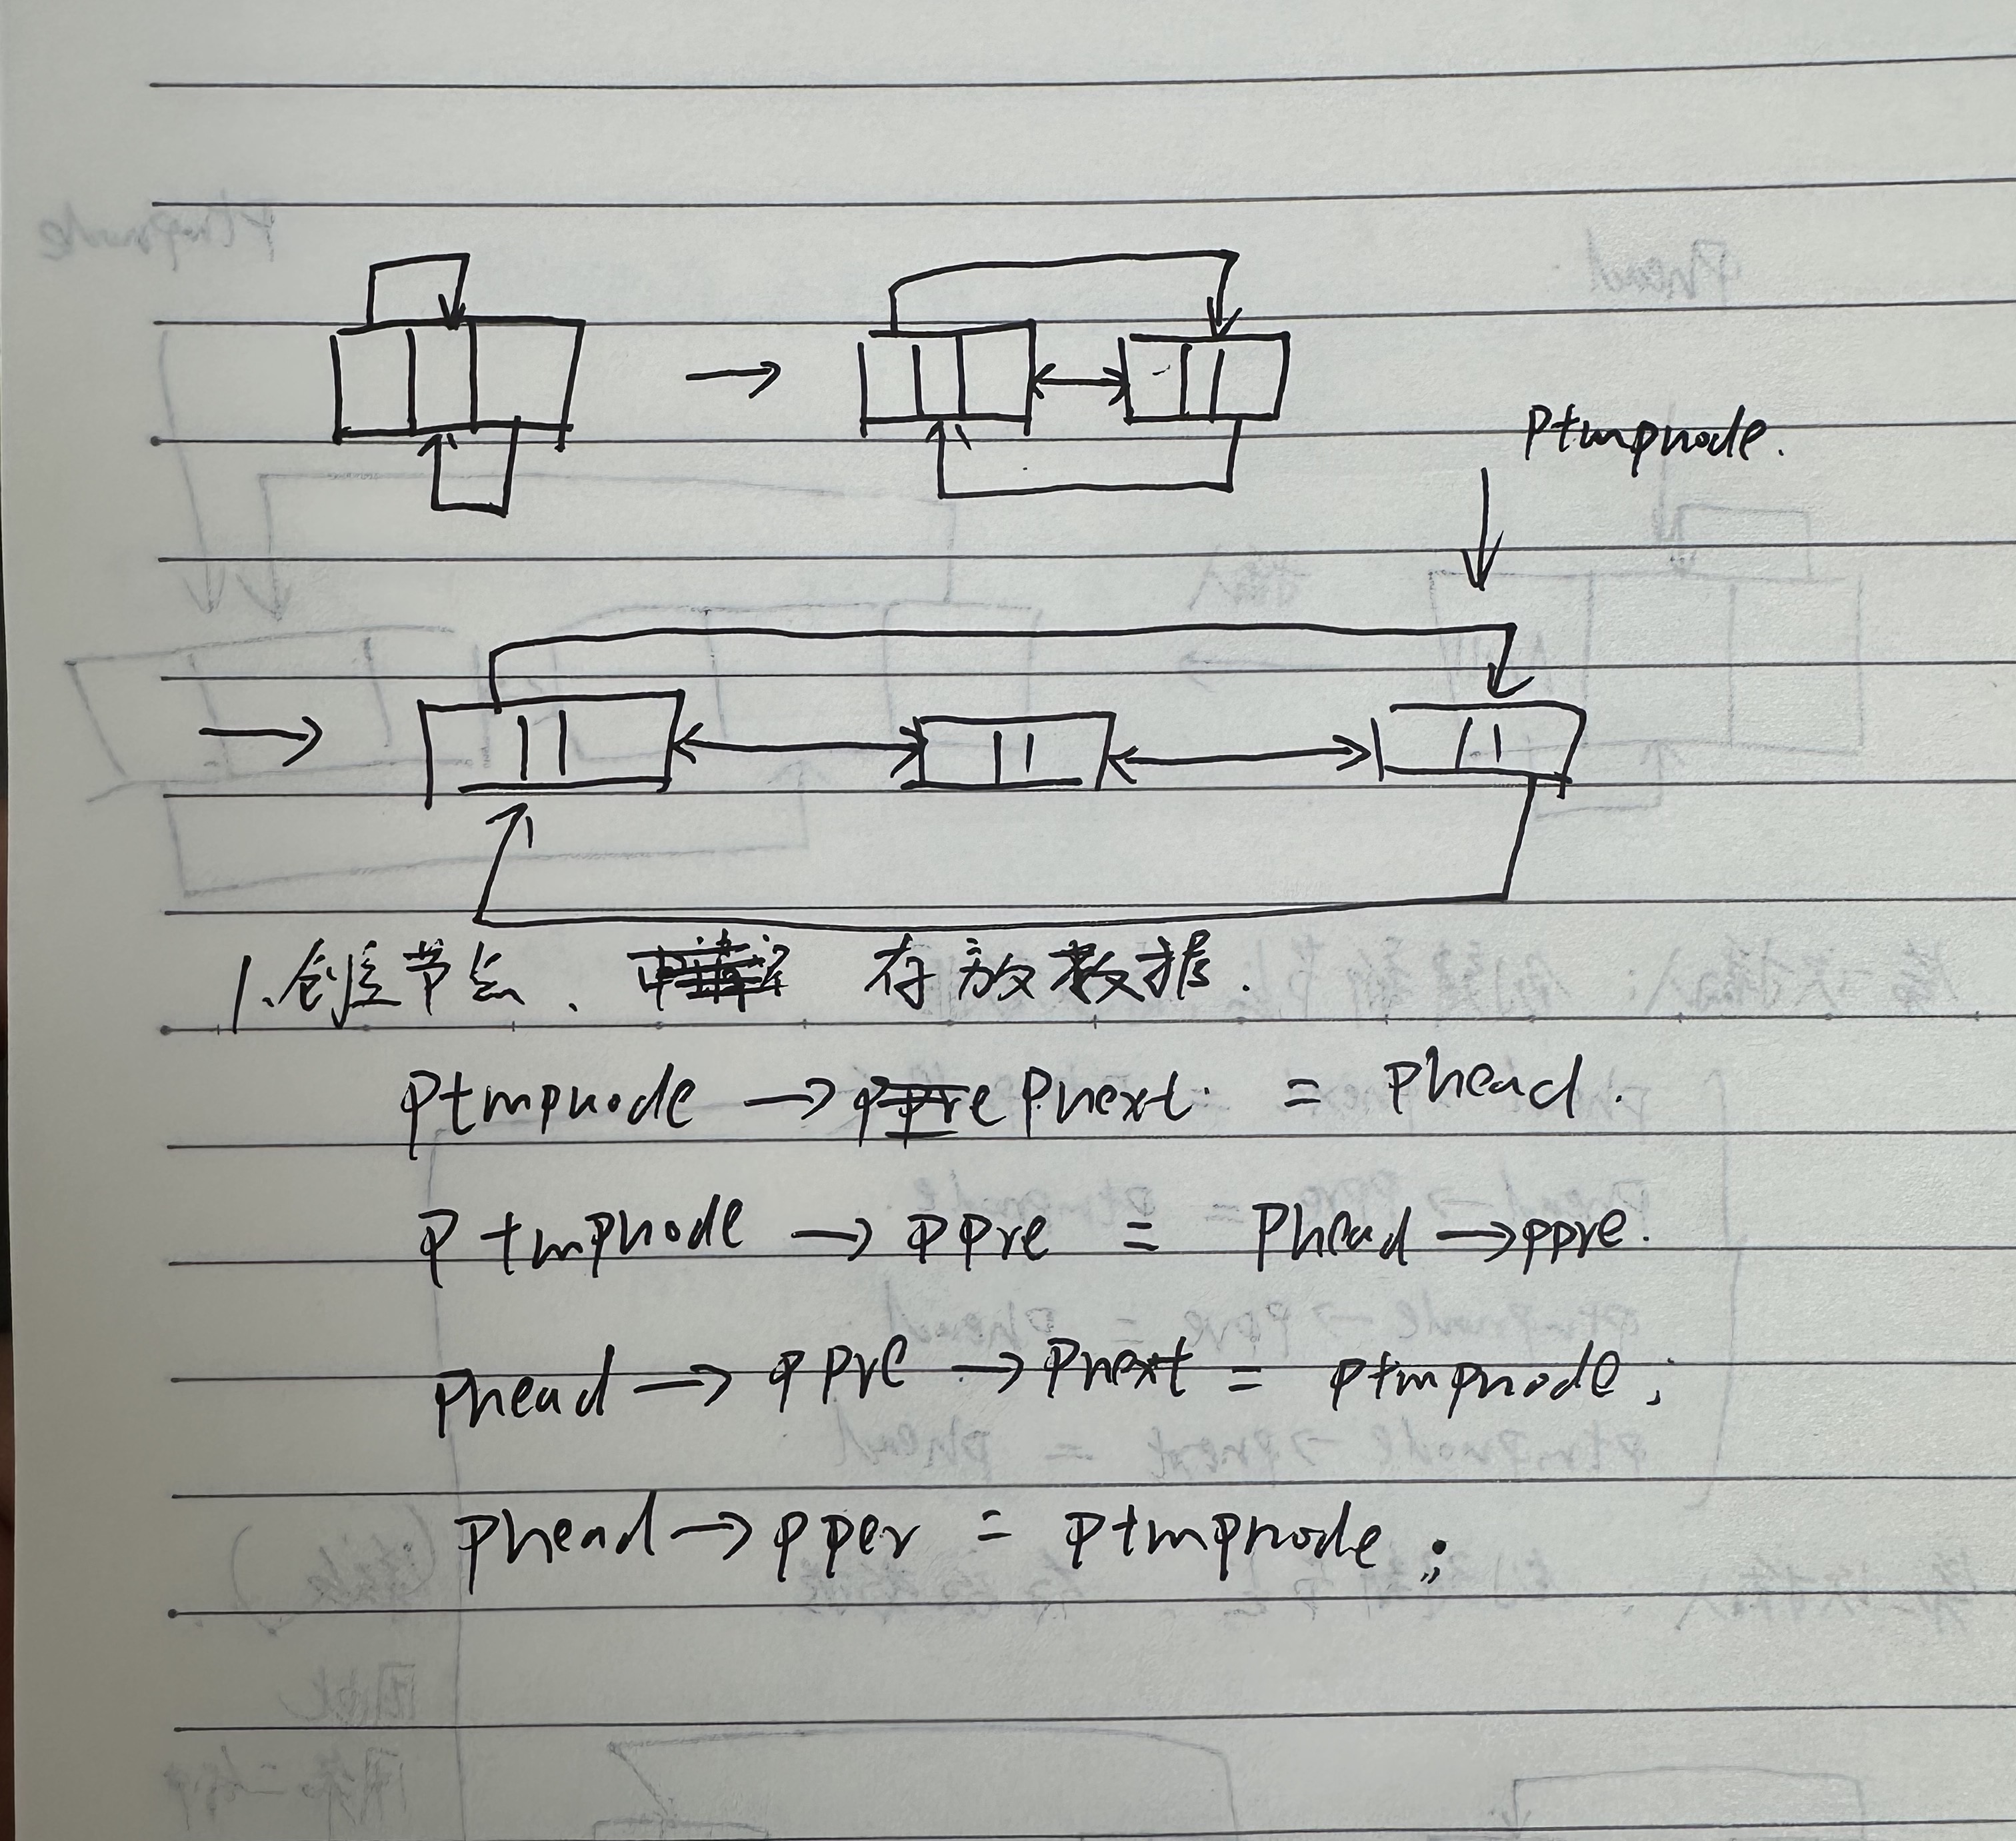 ptmpnode.
1.创建节点、 存放数据.
ptmpnode → pnext. = phead.
ptmpnode → ppre = phead → ppre.
phead → ppre → pnext = ptmpnode;
phead → pper = ptmpnode;